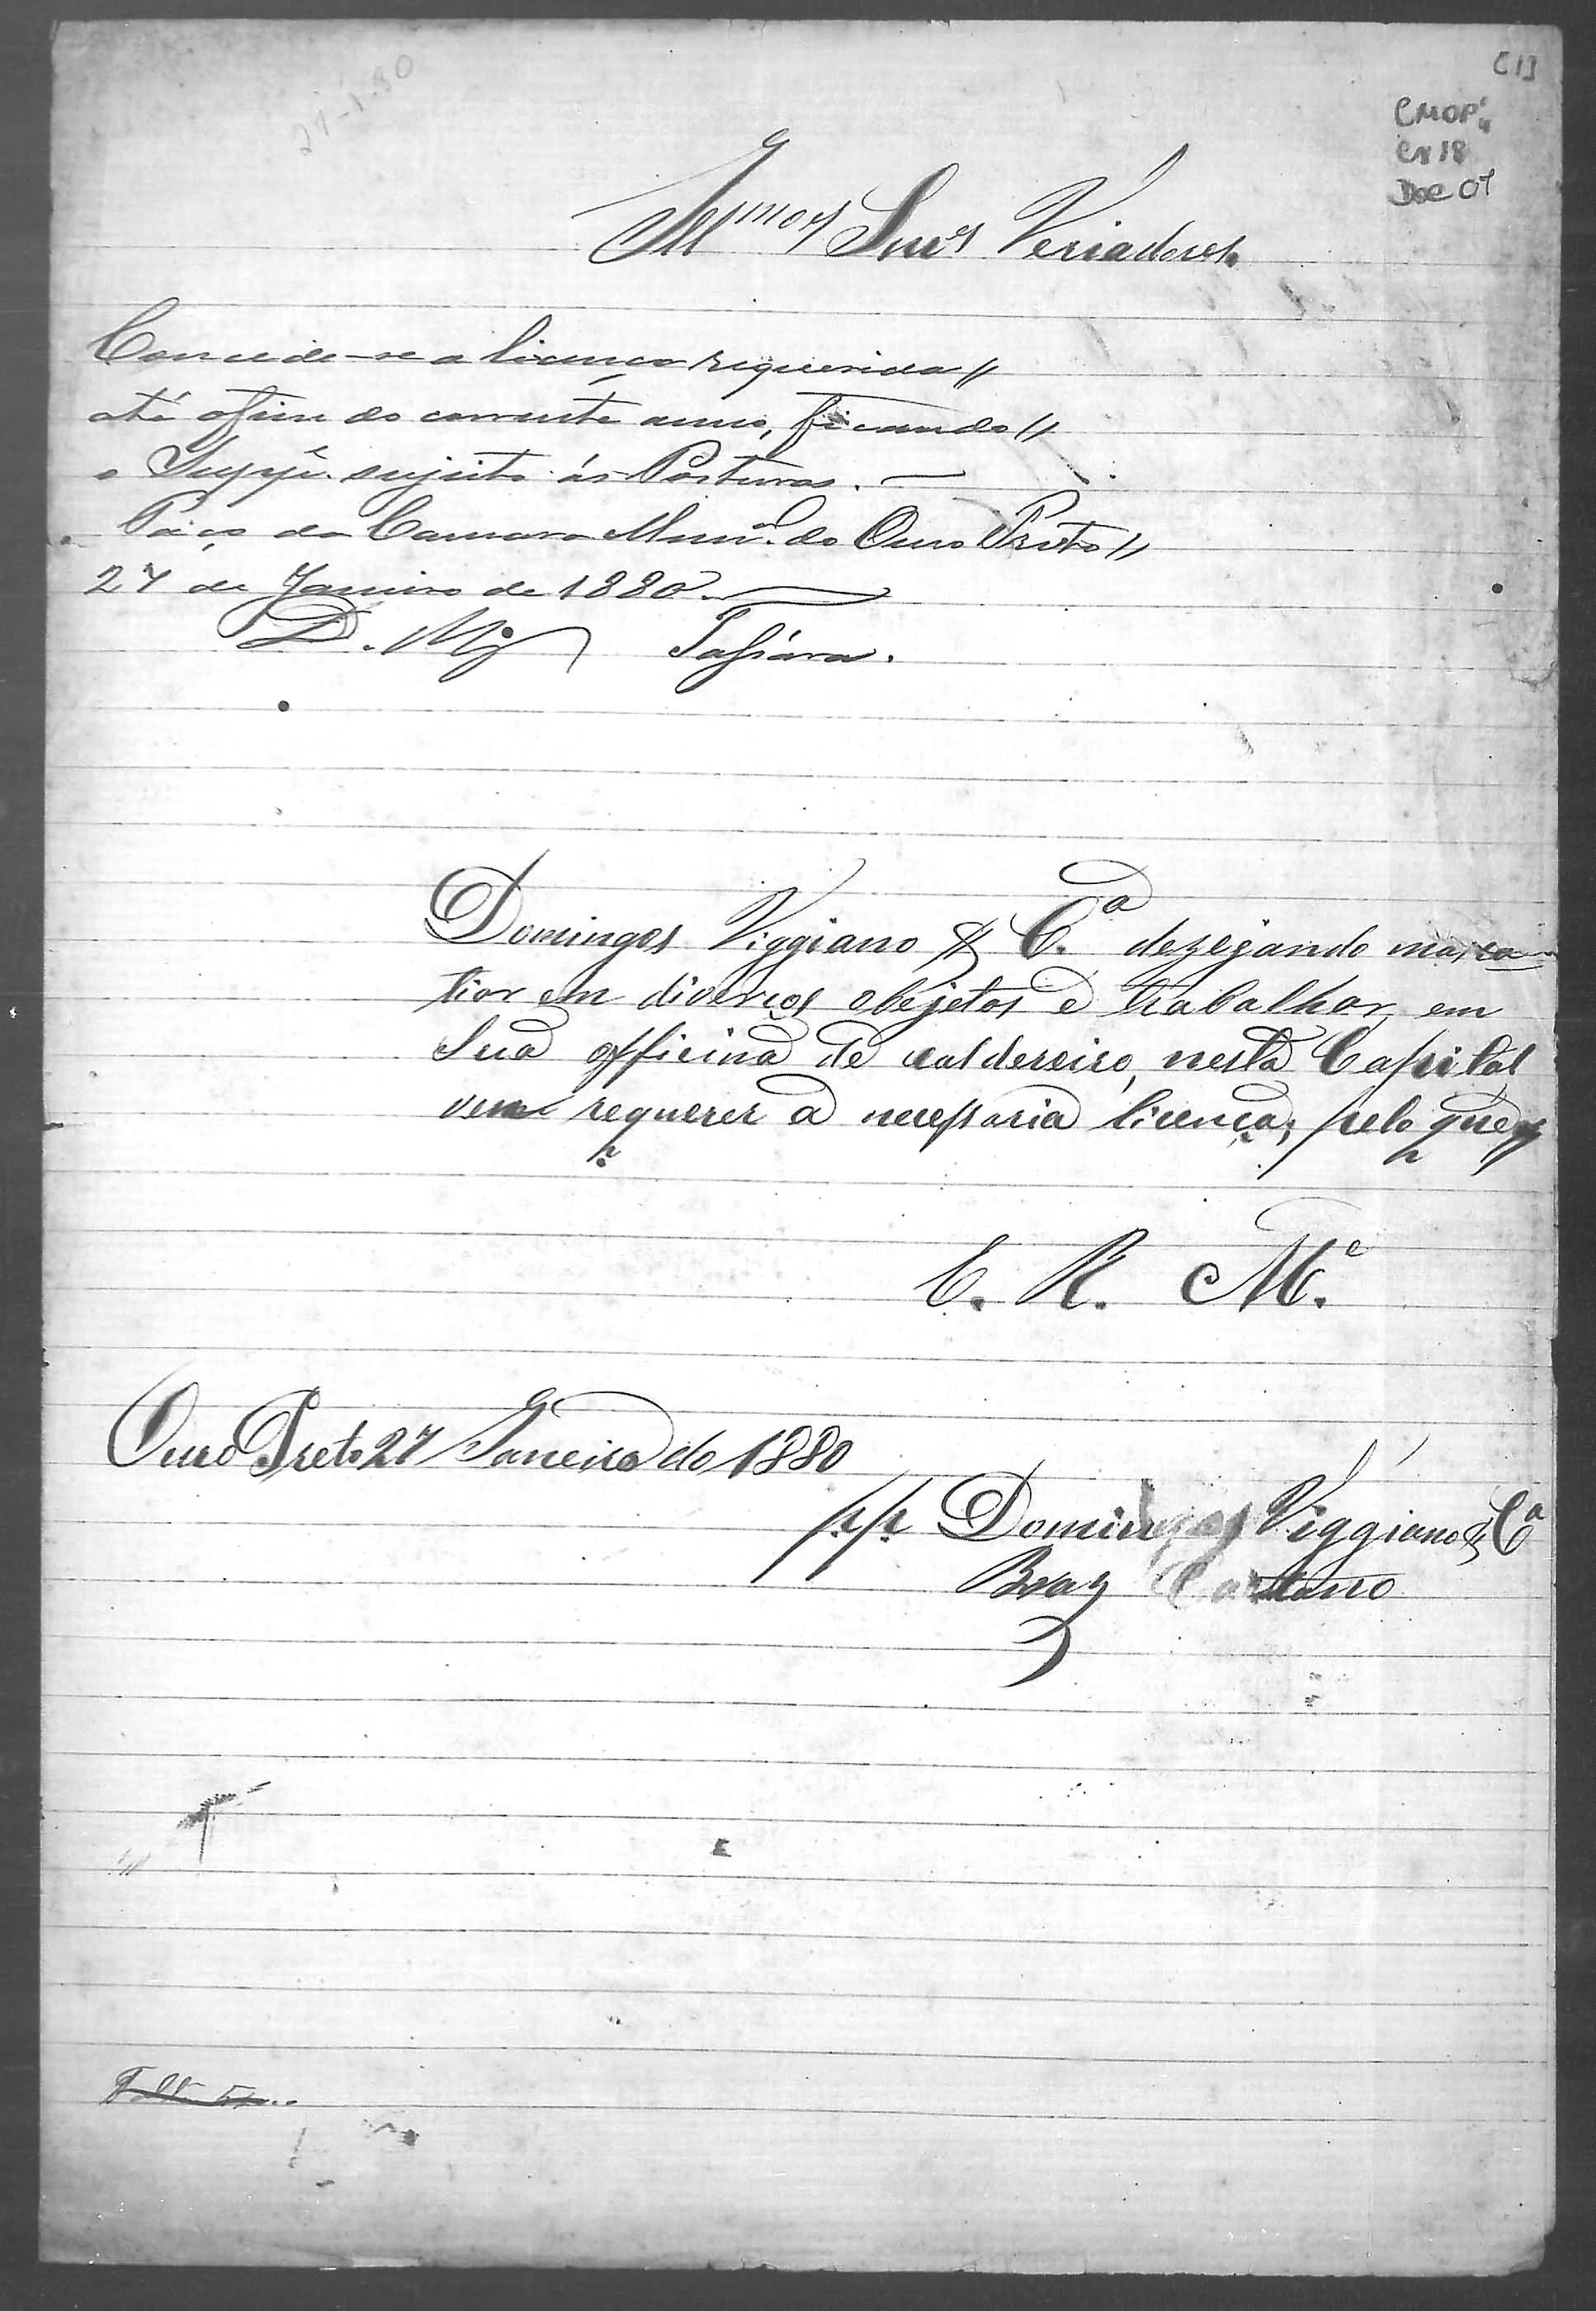 [1]
CMOP
Cx 18
Doc 07
27-1-80
Illmos Snres Veriadores.
Concede-se a licença requerida //
até o fim do corrente anno, ficando //
o Suppe. sujeito ás Posturas. —
Paço da Camara Munal. do Ouro Preto //
27 de Janeiro de 1880.
Domingos Viggiano & Ca. dezejando masca
tiar em diverços objetos e trabalhar em
Sua officina de caldereiro, nesta Capital
vem requerer a necessaria licença; pelo que
E. R. Me.
Ouro Preto 27 Janeiro do 1880
pp Domingos Viggiano & Ca
Braz